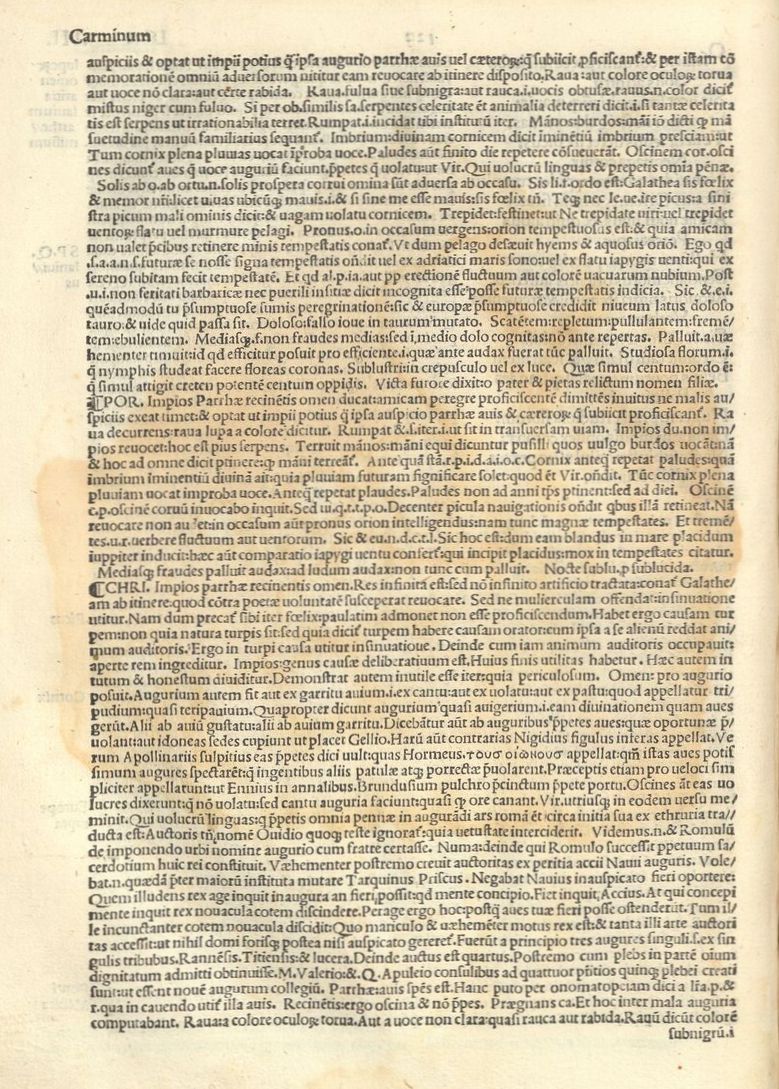 Carminum
auspiciis & optat ut impii potius q̃ ipsa augurio parrhæ auis uel cæterorꝝ:q̃ subiicit ꝓficiscant᷑:& per istam cõ
memorationẽ omniũ aduersorum nititur eam reuocare ab itinere disposito. Raua:aut colore oculorꝝ torua
aut uoce nõ clara:aut cẽrte rabida. Raua.fulua siue subnigra:aut rauca.i.uocis obtusæ.rauus.n.color dicit᷑
mistus niger cum fuluo. Si per ob.similis sa.serpentes celeritate ẽt animalia deterreri dicit.i.si tantæ celerita
tis est serpens ut irrationabilia terret. Rumpat.i.incidat tibi institutũ iter. Mãnos:burdos:mãi iõ dicti ꝙ mã
suetudine manuũ familiarius sequant᷑. Imbrium:diuinam cornicem dicit iminẽtiũ imbrium presciam:ut
Tum cornix plena pluuias uocat ĩproba uoce. Paludes aũt finito die repetere cõsueuerãt. Oscinem cor.osci
nes dicunt᷑ aues q̃ uoce auguriũ faciunt.p̃petes q̃ uolatu:ut Vir. Qui uolucrũ linguas & prepetis omĩa pẽnæ.
Solis ab o.ab ortu.n.solis prospera corrui omina sũt aduersa ab occasu. Sis li.t.ordo est:Galathea sis fœlix
& memor nr̃i:licet uiuas ubicũqꝫ mauis.i.& si sine me esse mauis:sis fœlix tñ. Teqꝫ nec le.ue.ire picus:a sini
stra picum mali ominis dicit:& uagam uolatu cornicem. Trepidet:festinet:ut Ne trepidate uiri:uel trepidet
uentorꝝ flatu uel murmure pelagi. Pronus.o.in occasum uergens:orion tempestuosus est:& quia amicam
non ualet p̃cibus retinere minis tempestatis conat᷑. Vt dum pelago desæuit hyems & aquosus oriõ. Ego qd
.s.a.a.n.s.futuræ se nosse signa tempestatis oñdit uel ex adriatici maris sono:uel ex flatu iapygis uenti:qui ex
sereno subitam fecit tempestatẽ. Et qd al.p.ia.aut pp erectionẽ fluctuum aut colorẽ uacuarum nubium. Post
.u.i.non feritati barbaricæ nec puerili insitiæ dicit incognita esse posse futuræ tempestatis indicia. Sic .&.e.i.
quẽadmodũ tu p̃sumptuose sumis peregrinationẽ:sic & europæ p̃sumptuose credidit niueum latus doloso
tauro:& uide quid passa sit. Doloso:falso ioue in taurum mutato. Scatẽtem:repletum:pullulantem:fremẽ/
tem:ebulientem. Mediasqꝫ.f.non fraudes medias:sed ĩ medio dolo cognitas:nõ ante repertas. Palluit.a.uæ
hementer timuit:id qd efficitur posuit pro efficiente.i.quæ ante audax fuerat tũc palluit. Studiosa florum.i.
q̃ nymphis studeat facere floreas coronas. Sublustri:in crepusculo uel ex luce. Quæ simul centum:ordo ẽ:
q̃ simul attigit creten potentẽ centum oppidis. Victa furore dixit:o pater & pietas relictum nomen filiæ.
¶POR. Impios Parrhæ recinẽtis omen ducat:amicam peregre proficiscentẽ dimittẽs inuitus ne malis au/
spiciis exeat timet:& optat ut impii potius q̃ ipsa auspicio parrhæ auis & cæterorꝝ q̃ subiicit proficiscant᷑. Ra
ua decurrens:raua lupa a colore dicitur. Rumpat &.s.iter.i.ut sit in transuersam uiam. Impios du.non im/
pios reuocet:hoc est pius serpens. Terruit mãnos:mãni equi dicuntur pusilli quos uulgo burdos uocãt:nã
& hoc ad omne dicit ptinere:ꝙ mãni terreãt᷑. Ante quã stã.r.p.i.d.a.i.o.c.Cornix anteq̃ repetat paludes:quã
imbrium iminentiũ diuinã ait:quia pluuiam futuram significare solet:quod ẽt Vir.oñdit. Tũc cornix plena
pluuiam uocat improba uoce.Anteq̃ repetat plaudes.Paludes non ad anni tp̃s ptinent:sed ad diei. Oscinẽ
c.p.oscinẽ coruũ inuocabo inquit.Sed tu.q.t.t.p.o.Decenter picula nauigationis oñdit qbus illã retineat.Nã
reuocare non au et:in occasum aũt pronus orion intelligendus:nam tunc magnæ tempestates. Et tremẽ/
tes.u.r.uerbere fluctuum aut uentorum. Sic & eu.n.d.c.t.l.Sic hoc est:dum eam blandus in mare placidum
iuppiter inducit:hæc aũt comparatio iapygi uentu confert᷑:qui incipit placidus:mox in tempestates citatur.
Mediasqꝫ fraudes palluit audax:ad ludum audax:non tunc cum palluit. Nocte sublu.p sublucida.
¶CHRI. Impios parrhæ recinentis omen.Res infinita est:sed nõ infinito artificio tractata:conat᷑ Galathe/
am ab itinere:quod cõtra poetæ uoluntatẽ susceperat reuocare. Sed ne mulierculam offendat:insinuatione
utitur.Nam dum precat᷑ sibi iter fœlix:paulatim admonet non esse proficiscendum.Habet ergo causam tur
pem:non quia natura turpis sit:sed quia dicit᷑ turpem habere causam orator:cum ipsa a se alienũ reddat ani/
mum auditoris. Ergo in turpi causa utitur insinuatione. Deinde cum iam animum auditoris occupauit:
aperte rem ingreditur. Impios:genus causæ deliberatiuum est.Huius finis utilitas habetur. Hæc autem in
tutum & honestum diuiditur.Demonstrat autem inutile esse iter:quia periculosum. Omen:pro augurio
posuit.Augurium autem fit aut ex garritu auium.i.ex cantu:aut ex uolatu:aut ex pastu:quod appellatur tri/
pudium:quasi teripauium.Quapropter dicunt augurium quasi auigerium.i.eam diuinationem quam aues
gerũt. Alii ab auiũ gustatu:alii ab auium garritu.Dicebãtur aũt ab auguribus p̃petes aues:quæ oportunæ p̃/
uolant:aut idoneas sedes cupiunt ut placet Gellio.Harũ aũt contrarias Nigidius figulus inferas appellat.Ve
rum Apollinariis sulpitius eas p̃petes dici uult:quas Hormeus.τουσ οιωνουσ appellat:qm̃ istas aues potis
simum augures spectarẽt:q̃ ingentibus aliis patulæ atqꝫ porrectæ p̃uolarent.Præceptis etiam pro ueloci sim
pliciter appellatur:ut:ut Ennius in annalibus.Brundusium pulchro p̃cinctum p̃pete portu.Oscines ãt eas uo
lucres dixerunt:q̃ nõ uolatu:sed cantu auguria faciunt:quasi ꝙ ore canant.Vir.utriusqꝫ in eodem uersu me/
minit.Qui uolucrũ linguas:q̃ p̃petis omnia pennæ in augurãdi ars romã ẽt circa initia sua ex ethruria tra//
ducta est:Auctoris tñ nomẽ Ouidio quoqꝫ teste ignorat᷑:quia uetustate interciderit. Videmus.n.& Romulũ
de imponendo urbi nomine augurio cum fratre certasse. Numa:deinde qui Romulo successit ppetuum sa/
cerdotium huic rei constituit. Væhementer postremo creuit auctoritas ex peritia accii Nauii auguris. Vole/
bat.n.quædã p̃ter maiorũ instituta mutare Tarquinus Priscus. Negabat Nauius inauspicato fieri oportere:
Quem illudens rex age inquit inaugura an fieri possit:qd mente concipio.Fiet inquit Accius.At qui concepi
mente inquit rex nouacula cotem discindere.Perage ergo hoc:postq̃ aues tuæ fieri posse ostenderũt.Tum il/
le incunctanter cotem nouacula discidit:Quo mariculo & uæhemẽter motus rex est:& tanta illi arte auctori
tas accessit:ut nihil domi forisqꝫ postea nisi auspicato gereret᷑.Fuerũt a principio tres augures singuli.s.ex sin
gulis tribubus.Rannẽsis.Titiensis:& lucera.Deinde auctus est quartus.Postremo cum plebs in partẽ oium
dignitatum admitti obtinuisse.M.Valerio:&.Q.Apuleio consulibus ad quattuor p̃ntios quinqꝫ plebei creati
sunt:ut essent nouẽ augurum collegiũ. Parrhæ:auis sp̃es est.Hanc puto per onomatopeiam dici a lr̃a.p.&
r.qua in cauendo utit᷑ illa auis. Recinẽtis:ergo oscina & nõ p̃pes. Prægnans ca.Et hoc inter mala auguria
computabant. Raua:a colore oculorꝝ torua.Aut a uoce non clara:quasi rauca aut rabida.Rauũ dicũt colorẽ
subnigrũ.i